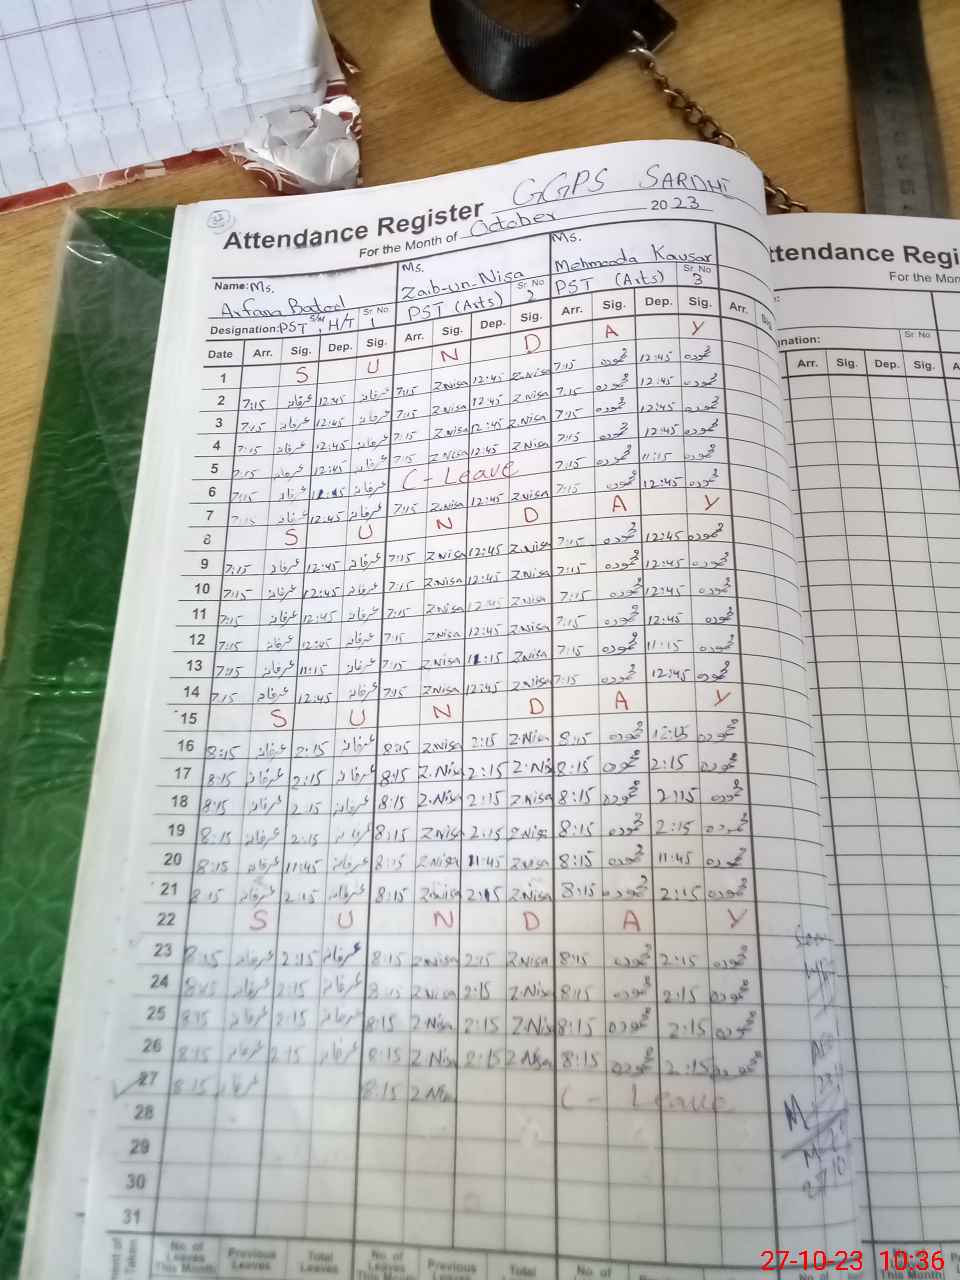 GGPS SARDHI
Attendance Register
For the Month of October 2023
Name: Ms. Arfana Batool Ms. Zaib-un-Nisa Ms. Mehmooda Kausar
Designation: PST H/T Sr No 1 PST (Arts) Sr No 2 PST (Arts) Sr No 3
Date Arr. Sig. Dep. Sig. Arr. Sig. Dep. Sig. Arr. Sig. Dep. Sig. Arr. Sig
1 S U N D A Y
2 7:15 عرفانہ 12:45 عرفانہ 7:15 Z.Nisa 12:45 Z.Nisa 7:15 محمودہ 12:45 محمودہ
3 7:15 عرفانہ 12:45 عرفانہ 7:15 Z.Nisa 12:45 Z.Nisa 7:15 محمودہ 12:45 محمودہ
4 7:15 عرفانہ 12:45 عرفانہ 7:15 Z.Nisa 12:45 Z.Nisa 7:15 محمودہ 12:45 محمودہ
5 7:15 عرفانہ 12:45 عرفانہ 7:15 Z.Nisa 12:45 Z.Nisa 7:15 محمودہ 12:45 محمودہ
6 7:15 عرفانہ عرفانہ C - Leave 7:15 محمودہ 11:15 محمودہ
7 7:15 عرفانہ 12:45 عرفانہ 7:15 Z.Nisa 12:45 Z.Nisa 7:15 محمودہ 12:45 محمودہ
8 S U N D A Y
9 7:15 عرفانہ 12:45 عرفانہ 7:15 Z.Nisa 12:45 Z.Nisa 7:15 محمودہ 12:45 محمودہ
10 7:15 عرفانہ 12:45 عرفانہ 7:15 Z.Nisa 12:45 Z.Nisa 7:15 محمودہ 12:45 محمودہ
11 7:15 عرفانہ 12:45 عرفانہ 7:15 Z.Nisa 12:45 Z.Nisa 7:15 محمودہ 12:45 محمودہ
12 7:15 عرفانہ 12:45 عرفانہ 7:15 Z.Nisa 12:45 Z.Nisa 7:15 محمودہ 12:45 محمودہ
13 7:15 عرفانہ 11:15 عرفانہ 7:15 Z.Nisa 11:15 Z.Nisa 7:15 محمودہ 11:15 محمودہ
14 7:15 عرفانہ 12:45 عرفانہ 7:15 Z.Nisa 12:45 Z.Nisa 7:15 محمودہ 12:45 محمودہ
15 S U N D A Y
16 8:15 عرفانہ 2:15 عرفانہ 8:15 Z.Nisa 2:15 Z.Nisa 8:15 محمودہ محمودہ
17 8:15 عرفانہ 2:15 عرفانہ 8:15 Z.Nisa 2:15 Z.Nisa 8:15 محمودہ 2:15 محمودہ
18 8:15 عرفانہ 2:15 عرفانہ 8:15 Z.Nisa 2:15 Z.Nisa 8:15 محمودہ 2:15 محمودہ
19 8:15 عرفانہ 2:15 عرفانہ 8:15 Z.Nisa 2:15 Z.Nisa 8:15 محمودہ 2:15 محمودہ
20 8:15 عرفانہ 11:45 عرفانہ 8:15 Z.Nisa 11:45 Z.Nisa 8:15 محمودہ 11:45 محمودہ
21 8:15 عرفانہ 2:15 عرفانہ 8:15 Z.Nisa 2:15 Z.Nisa 8:15 محمودہ 2:15 محمودہ
22 S U N D A Y
23 8:15 عرفانہ 2:15 عرفانہ 8:15 Z.Nisa 2:15 Z.Nisa 8:15 محمودہ 2:15 محمودہ
24 8:15 عرفانہ 2:15 عرفانہ 8:15 Z.Nisa 2:15 Z.Nisa 8:15 محمودہ 2:15 محمودہ
25 8:15 عرفانہ 2:15 عرفانہ 8:15 Z.Nisa 2:15 Z.Nis 8:15 محمودہ 2:15 محمودہ
26 8:15 عرفانہ 2:15 عرفانہ 8:15 Z.Nisa 2:15 Z.Nisa 8:15 محمودہ 2:15 محمودہ
27 8:15 عرفانہ 8:15 Z.Nisa C - Leave
28
29
30
31
No. of Leaves This Month Previous Leaves Total Leaves No. of Leaves This Month Previous Leaves Total No. of
ttendance Regi
For the Mon
nation: Sr No
Arr. Sig. Dep. Sig. A
27-10-23 10:36